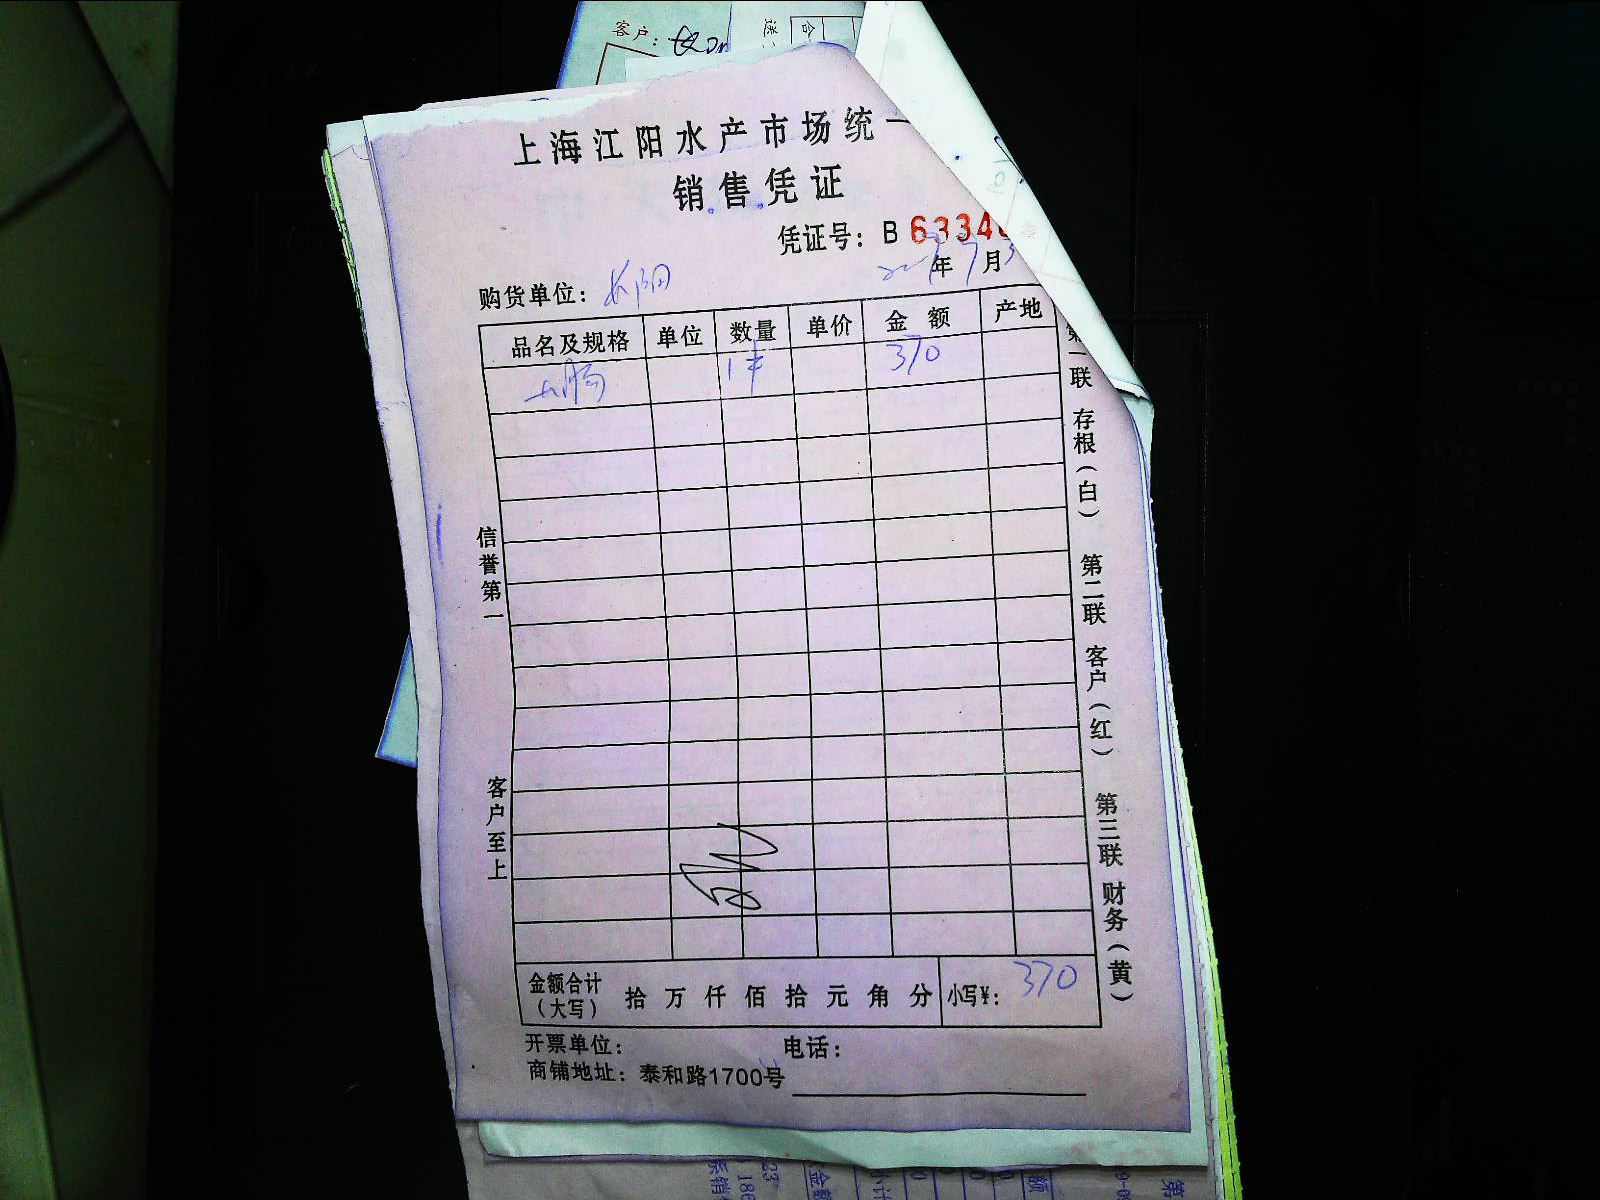 客户：
上海江阳水产市场统一
销售凭证
凭证号：B 6334
年 7 月
购货单位：长阳
品名及规格 单位 数量 单价 金额 产地
大肠 1件 370
信誉第一
客户至上
第一联 存根（白） 第二联 客户（红） 第三联 财务（黄）
金额合计（大写） 拾 万 仟 佰 拾 元 角 分 小写¥：370
开票单位： 电话：
商铺地址：泰和路1700号